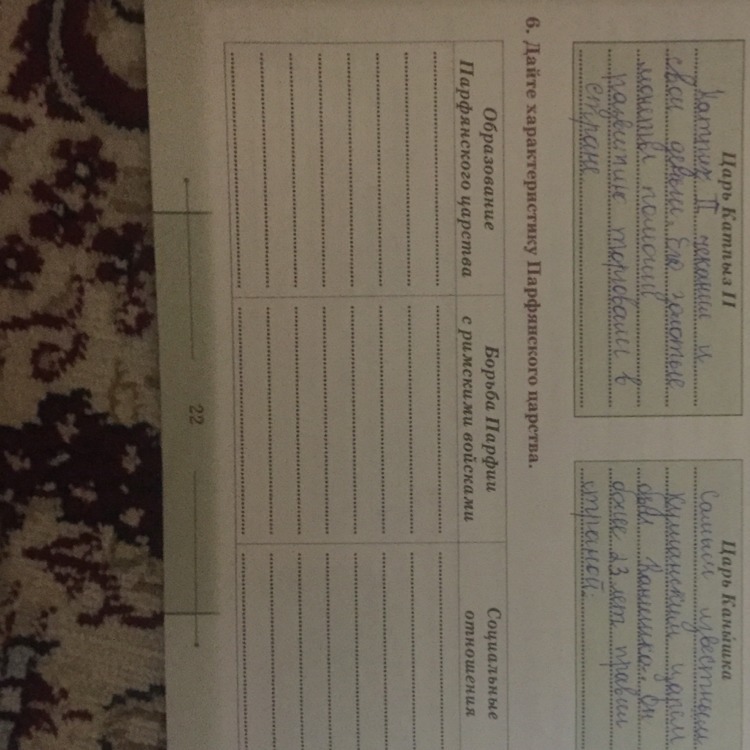 Царь Катпыз II
Катпиз II чеканил и
свои деньги. Его золотые
монеты помогли
развитию торговли в
стране
Царь Канышка
Самым известным
кушанский царём
был Канишка. Он
более 23 лет правил
страной.
6. Дайте характеристику Парфянского царства.
Образование
Парфянского царства
Борьба Парфии
с римскими войсками
Социальные
отношения
22